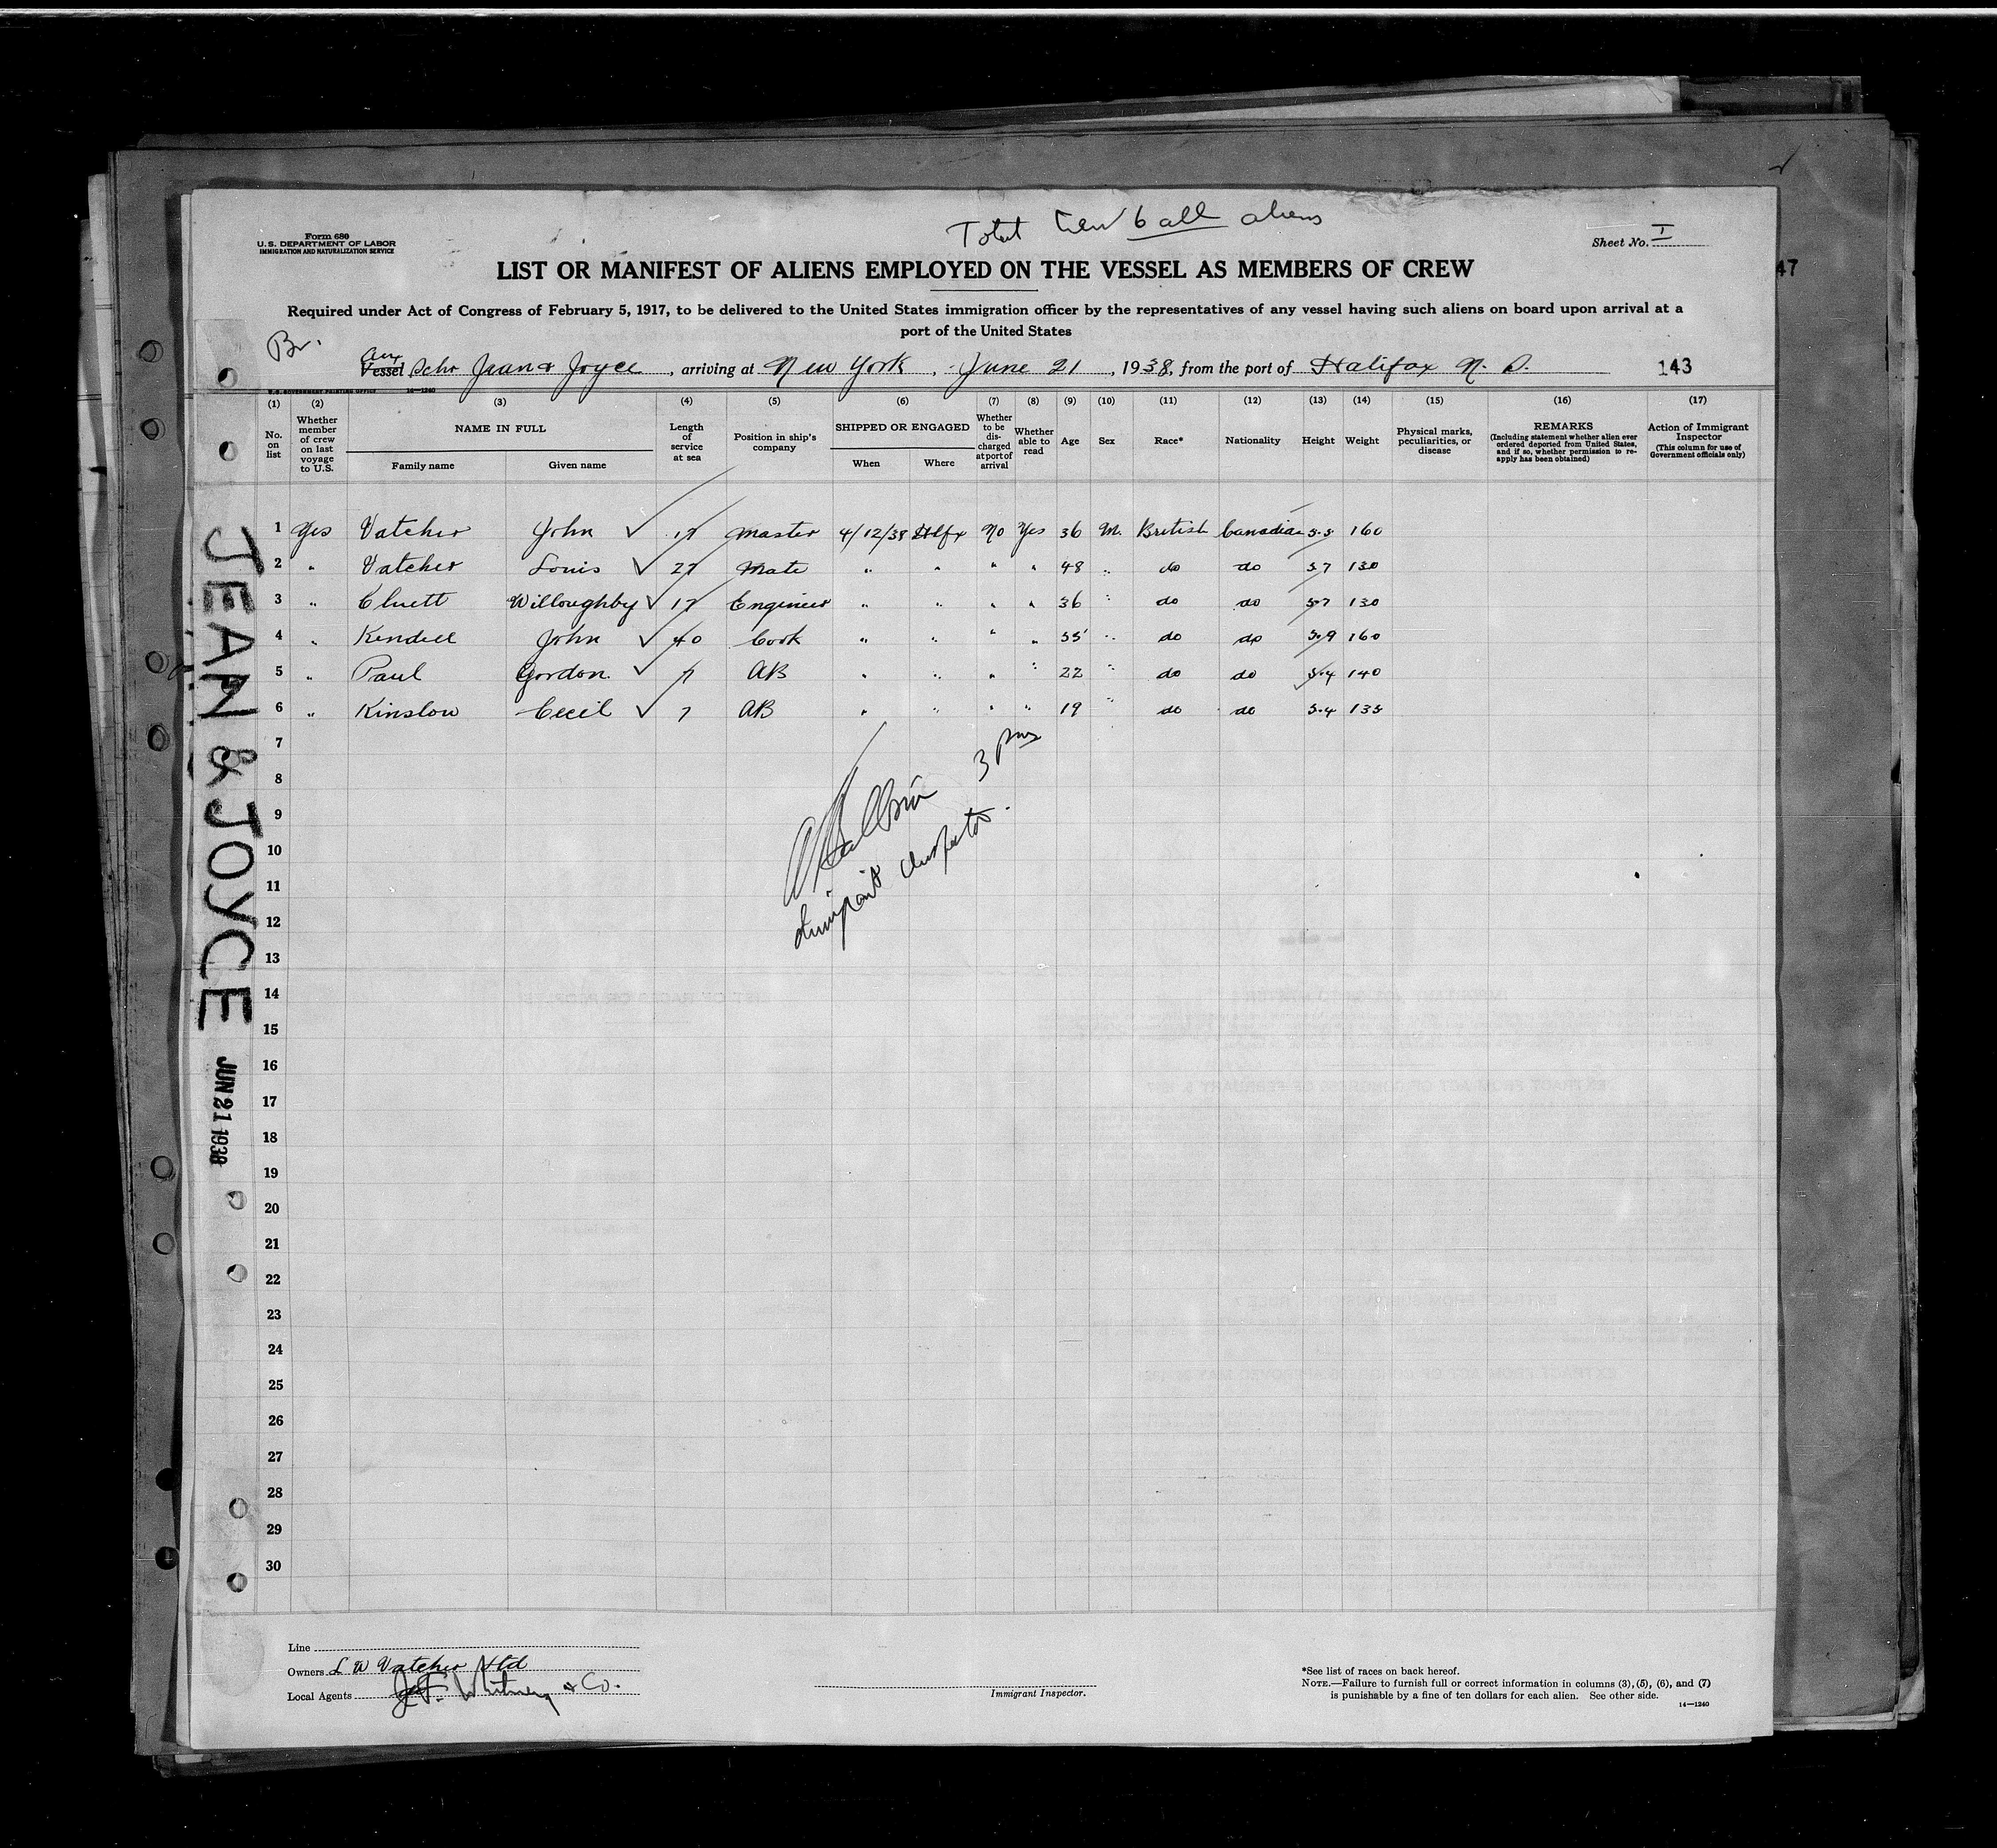 Total Crew 6 all aliens
Form 680
U. S. DEPARTMENT OF LABOR
IMMIGRATION AND NATURALIZATION SERVICE
Sheet No. I
LIST OR MANIFEST OF ALIENS EMPLOYED ON THE VESSEL AS MEMBERS OF CREW
47
Required under Act of Congress of February 5, 1917, to be delivered to the United States immigration officer by the representatives of any vessel having such aliens on board upon arrival at a
port of the United States
Br.
Aux
Vessel Schr Jean & Joyce, arriving at New York, June 21, 1938, from the port of Halifax N. S. 143
U. S. GOVERNMENT PRINTING OFFICE 14—1240
(1) (2) (3) (4) (5) (6) (7) (8) (9) (10) (11) (12) (13) (14) (15) (16) (17)
No. on list
Whether member of crew on last voyage to U.S.
NAME IN FULL
Family name Given name
Length of service at sea
Position in ship's company
SHIPPED OR ENGAGED
When Where
Whether to be discharged at port of arrival
Whether able to read
Age
Sex
Race*
Nationality
Height
Weight
Physical marks, peculiarities, or disease
REMARKS
(Including statement whether alien ever ordered deported from United States, and if so, whether permission to reapply has been obtained)
Action of Immigrant Inspector
(This column for use of Government officials only)
1 Yes Vatcher John ✓ 17 Master 4/12/38 Hlfx No Yes 36 M. British Canadian 5.5 160
2 " Vatcher Louis ✓ 27 Mate " " " " 48 " do do 5 7 130
3 " Cluett Willoughby ✓ 17 Engineer " " " " 36 " do do 5.7 130
4 " Kendell John ✓ 40 Cook " " " " 55 " do do 5.9 160
5 " Paul Gordon ✓ 7 AB " " " " 22 " do do 5.4 140
6 " Kinslow Cecil ✓ 7 AB " " " " 19 " do do 5.4 135
7
8
9
10
11
12
13
14
15
16
17
18
19
20
21
22
23
24
25
26
27
28
29
30
3 pm
Immigrant Inspector.
JEAN & JOYCE
JUN 21 1938
Line
Owners L W Vatcher Ltd
Local Agents J.F. Whitney & Co.
Immigrant Inspector.
*See list of races on back hereof.
NOTE.—Failure to furnish full or correct information in columns (3), (5), (6), and (7)
is punishable by a fine of ten dollars for each alien. See other side.
14—1240